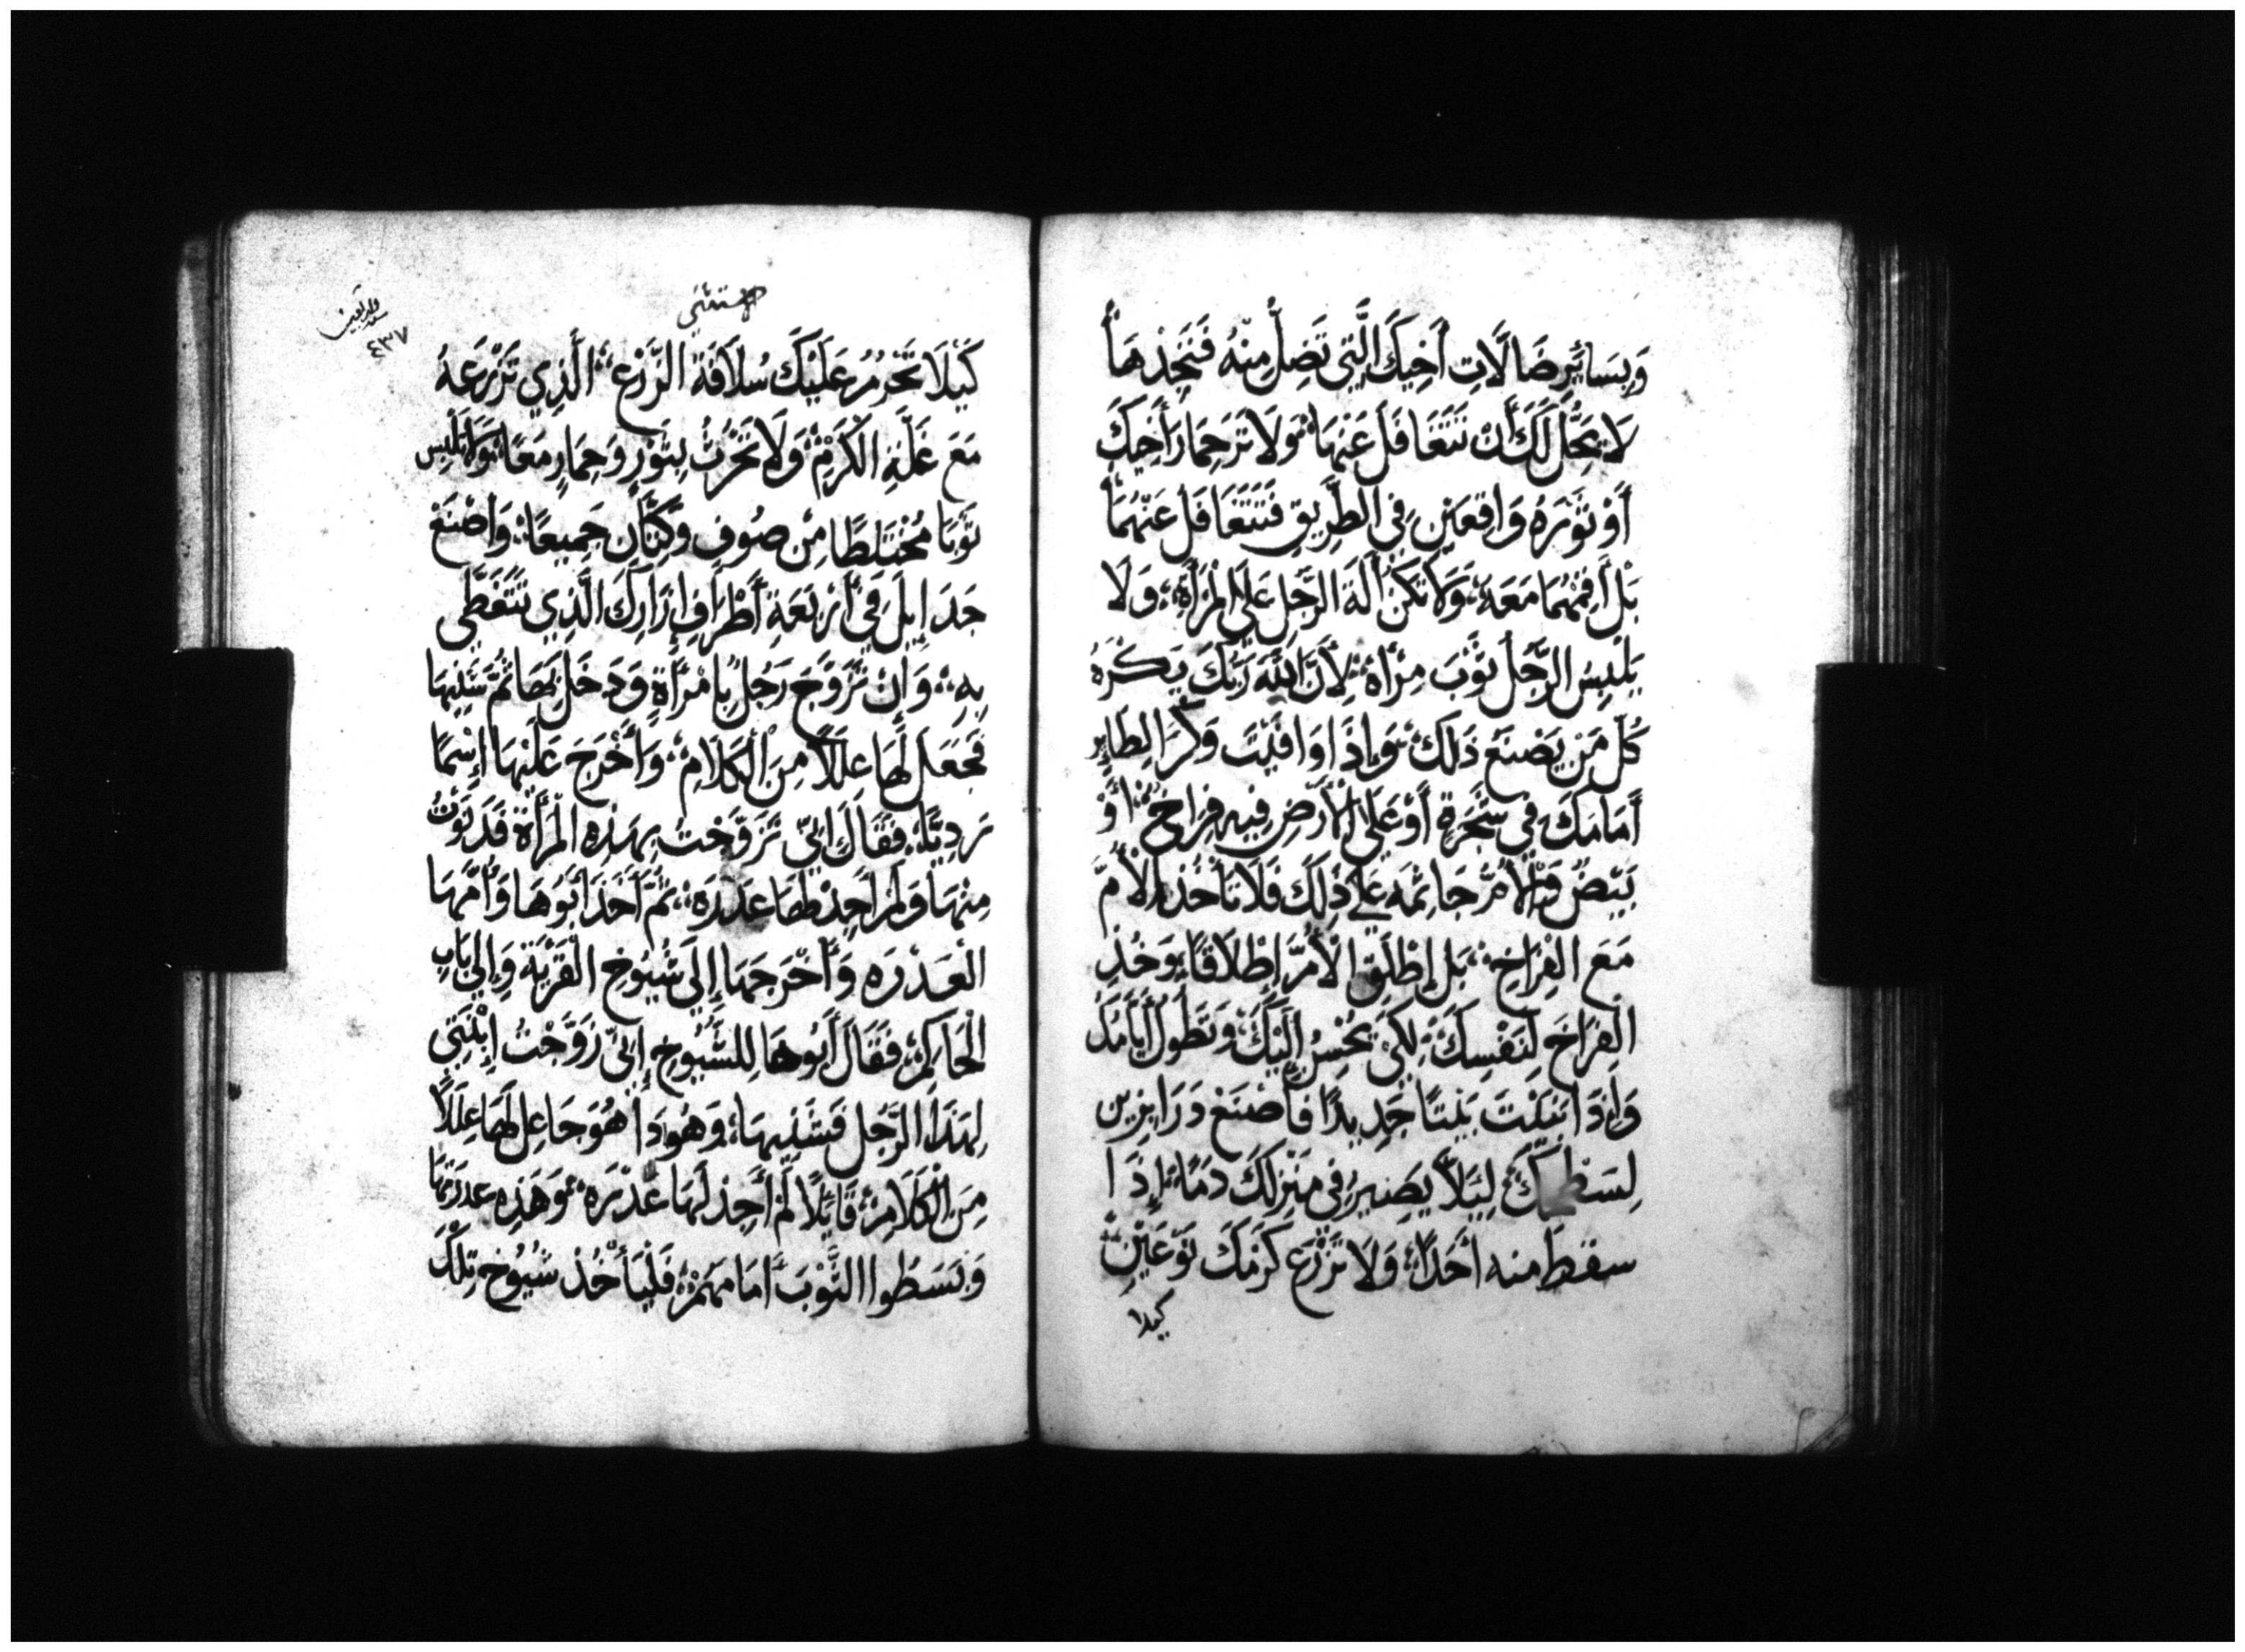 وَبِسَائِرِ ضَالَاتِ أَخِيكَ الَّتِي تَضِلُّ مِنْهُ فَتَجِدُهَا
لَا يَحِلُّ لَكَ أَنْ تَتَغَافَلَ عَنْهَا وَلَا تَرَ حِمَارَ أَخِيكَ
أَوْ ثَوْرَهُ وَاقِعَيْنِ فِي الطَّرِيقِ فَتَتَغَافَلَ عَنْهُمَا
بَلْ أَقِمْهُمَا مَعَهُ وَلَا تَكُنْ آلَةَ الرَّجُلِ عَلَى الْمَرْأَةِ وَلَا
يَلْبِسُ الرَّجُلُ ثَوْبَ مِرْأَةٍ لِأَنَّ اللهَ رَبَّكَ يَكْرَهُ
كُلَّ مَنْ يَصْنَعُ ذَلِكَ وَإِذَا وَافَيْتَ وَكْرَ الطَّايِرِ
أَمَامَكَ فِي شَجَرَةٍ أَوْ عَلَى الْأَرْضِ فِيهِ فِرَاخٌ أَوْ
بَيْضٌ وَالْأُمُّ جَاثِمَه عَلَى ذَلِكَ فَلَا تَأْخُذِ الْأُمَّ
مَعَ الْفِرَاخِ بَلْ إِطْلَقِ الْأُمَّ إِطْلَاقًا وَخُذِ
الْفِرَاخَ لِنَفْسِكَ لِكَيْ يُحْسِنُ إِلَيْكَ وَتَطُولُ أَيَّامُكَ
وَإِذَا بَنَيْتَ بَيْتًا جَدِيدًا فَأَصْنَعْ دَرَابِزِين
لِسَطْحِكَ لِيَلَّا يَصِيرُ فِي مَنْزِلِكَ دَمًا إِذَا
سقطَ منه أَحَدًا وَلَا تَزْرَع كَرْمَكَ نَوْعَيْنِ
كيلا
الاستثنى
٤٣٧
كَيْلَا تَحْرُمُ عَلَيْكَ سُلَافَةَ الزَّرْعِ الَّذِي تَزْرَعَهُ
مَعَ غَلَّةِ الْكَرْمِ وَلَا تَحْرُثُ بِثَوْرٍ وَحِمَارٍ مَعًا وَلَا تَلْبِس
ثَوْبًا مُخْتَلِطًا مِنْ صُوفٍ وَكِتَّانٍ جَمِيعًا وَاصْنَعْ
جَدَايِلَ فِي أَرْبَعَةِ أَطْرَافِ إِزَارِكَ الَّذِي تَتَغَطَّى
بِهِ وَإِنْ تَزَوَّجَ رَجُلٌ بِامْرَأَةٍ وَدَخَلَ بِهَا ثُمَّ شَنِيهَا
فَجَعَلَ لَهَا عِلَلًا مِنَ الْكَلَامِ وَأَخْرَجَ عَلَيْهَا إِسْمًا
رَدِيًّا فَقَالَ إِنِّي تَزَوَّجْتُ بِهَذِهِ الْمَرْأَةِ فَدَنَوْتُ
مِنْهَا وَلَمْ أَجِدْ لَهَا عَذْرَه ثُمَّ أَخَذَ أَبُوهَا وَأُمُّهَا
الْعَذْرَه وَأَخْرَجَهَا إِلَى شُيُوخِ الْقَرْيَةِ وَإِلَى بَابِ
الْحَاكِمِ فَقَالَ أَبُوهَا لِلشُّيُوخِ إِنِّي زَوَّجْتُ إِبْنَتِي
لِهَذَا الرَّجُلِ فَشَنِيهَا وَهُوَ ذَا هُوَ جَاعِل لَهَا عِلَلًا
مِنَ الْكَلَامِ قَايِلًا لَمْ أَجِدْ لَهَا عَذْرَه وَهَذِهِ عذرتها
وَبَسَطُوا الثَّوْبَ أَمَامَهُمْ فَلْيَأْخُذْ شُيُوخ تِلْكَ